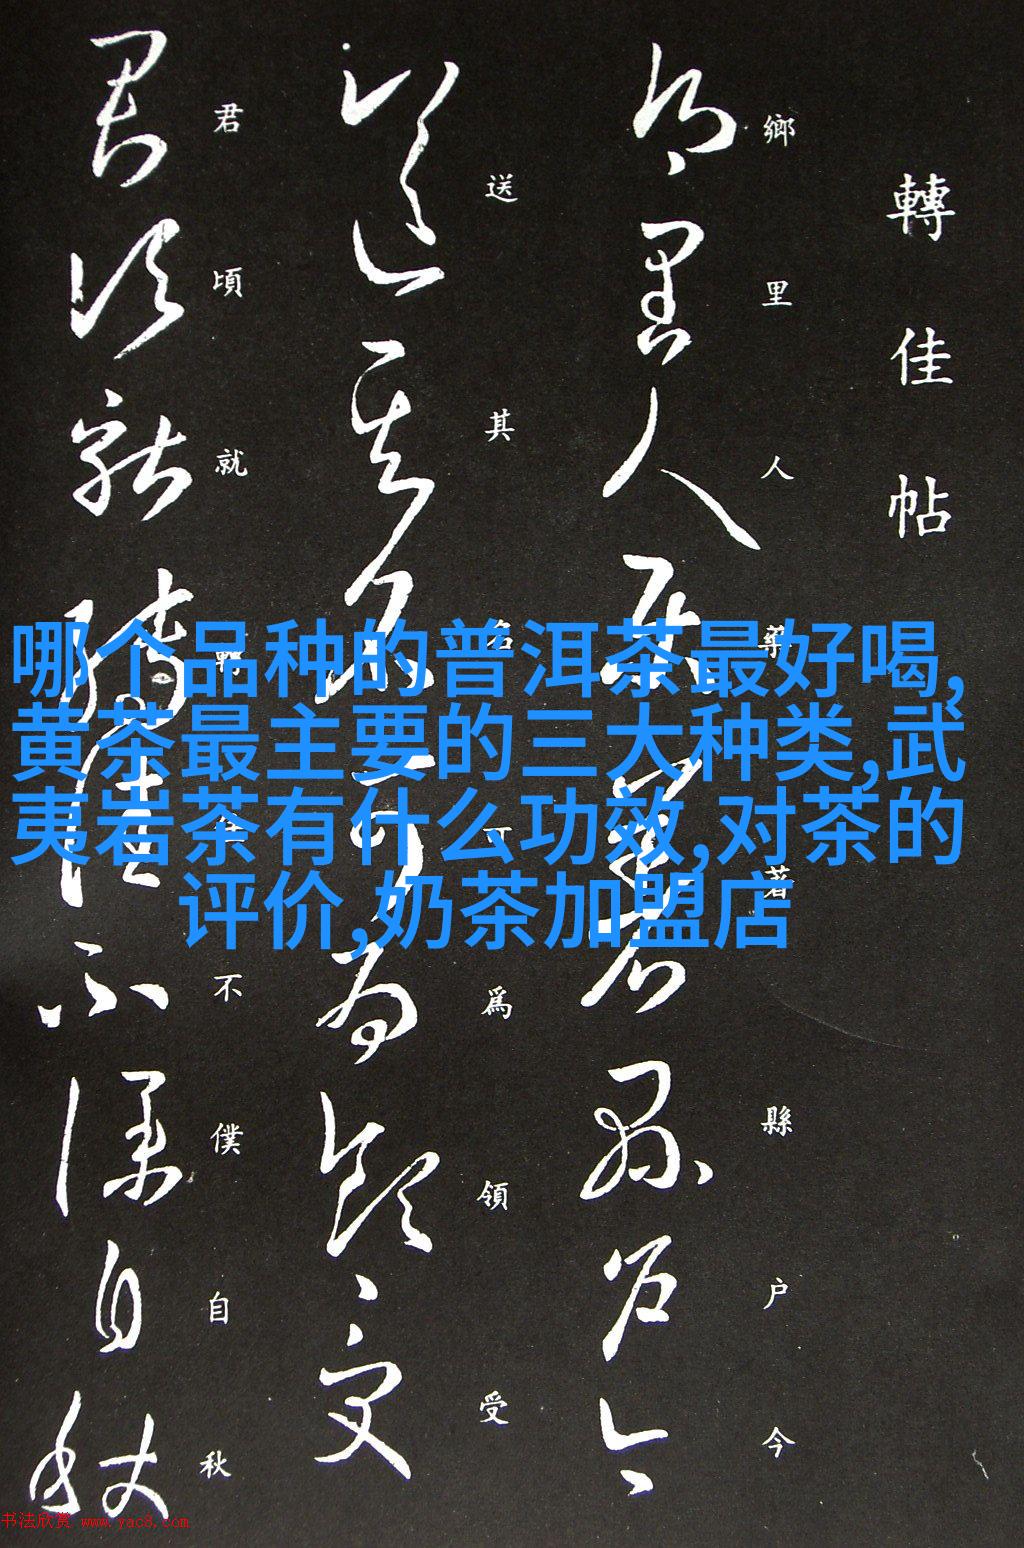 轉佳帖
鄉里人
縣户今
送其
爲領受
君頃就
不僕自秋
哪个品种的普洱茶最好喝,
黄茶最主要的三大种类,武
夷岩茶有什么功效,对茶的
评价,奶茶加盟店
书法欣赏 www.yac8.com